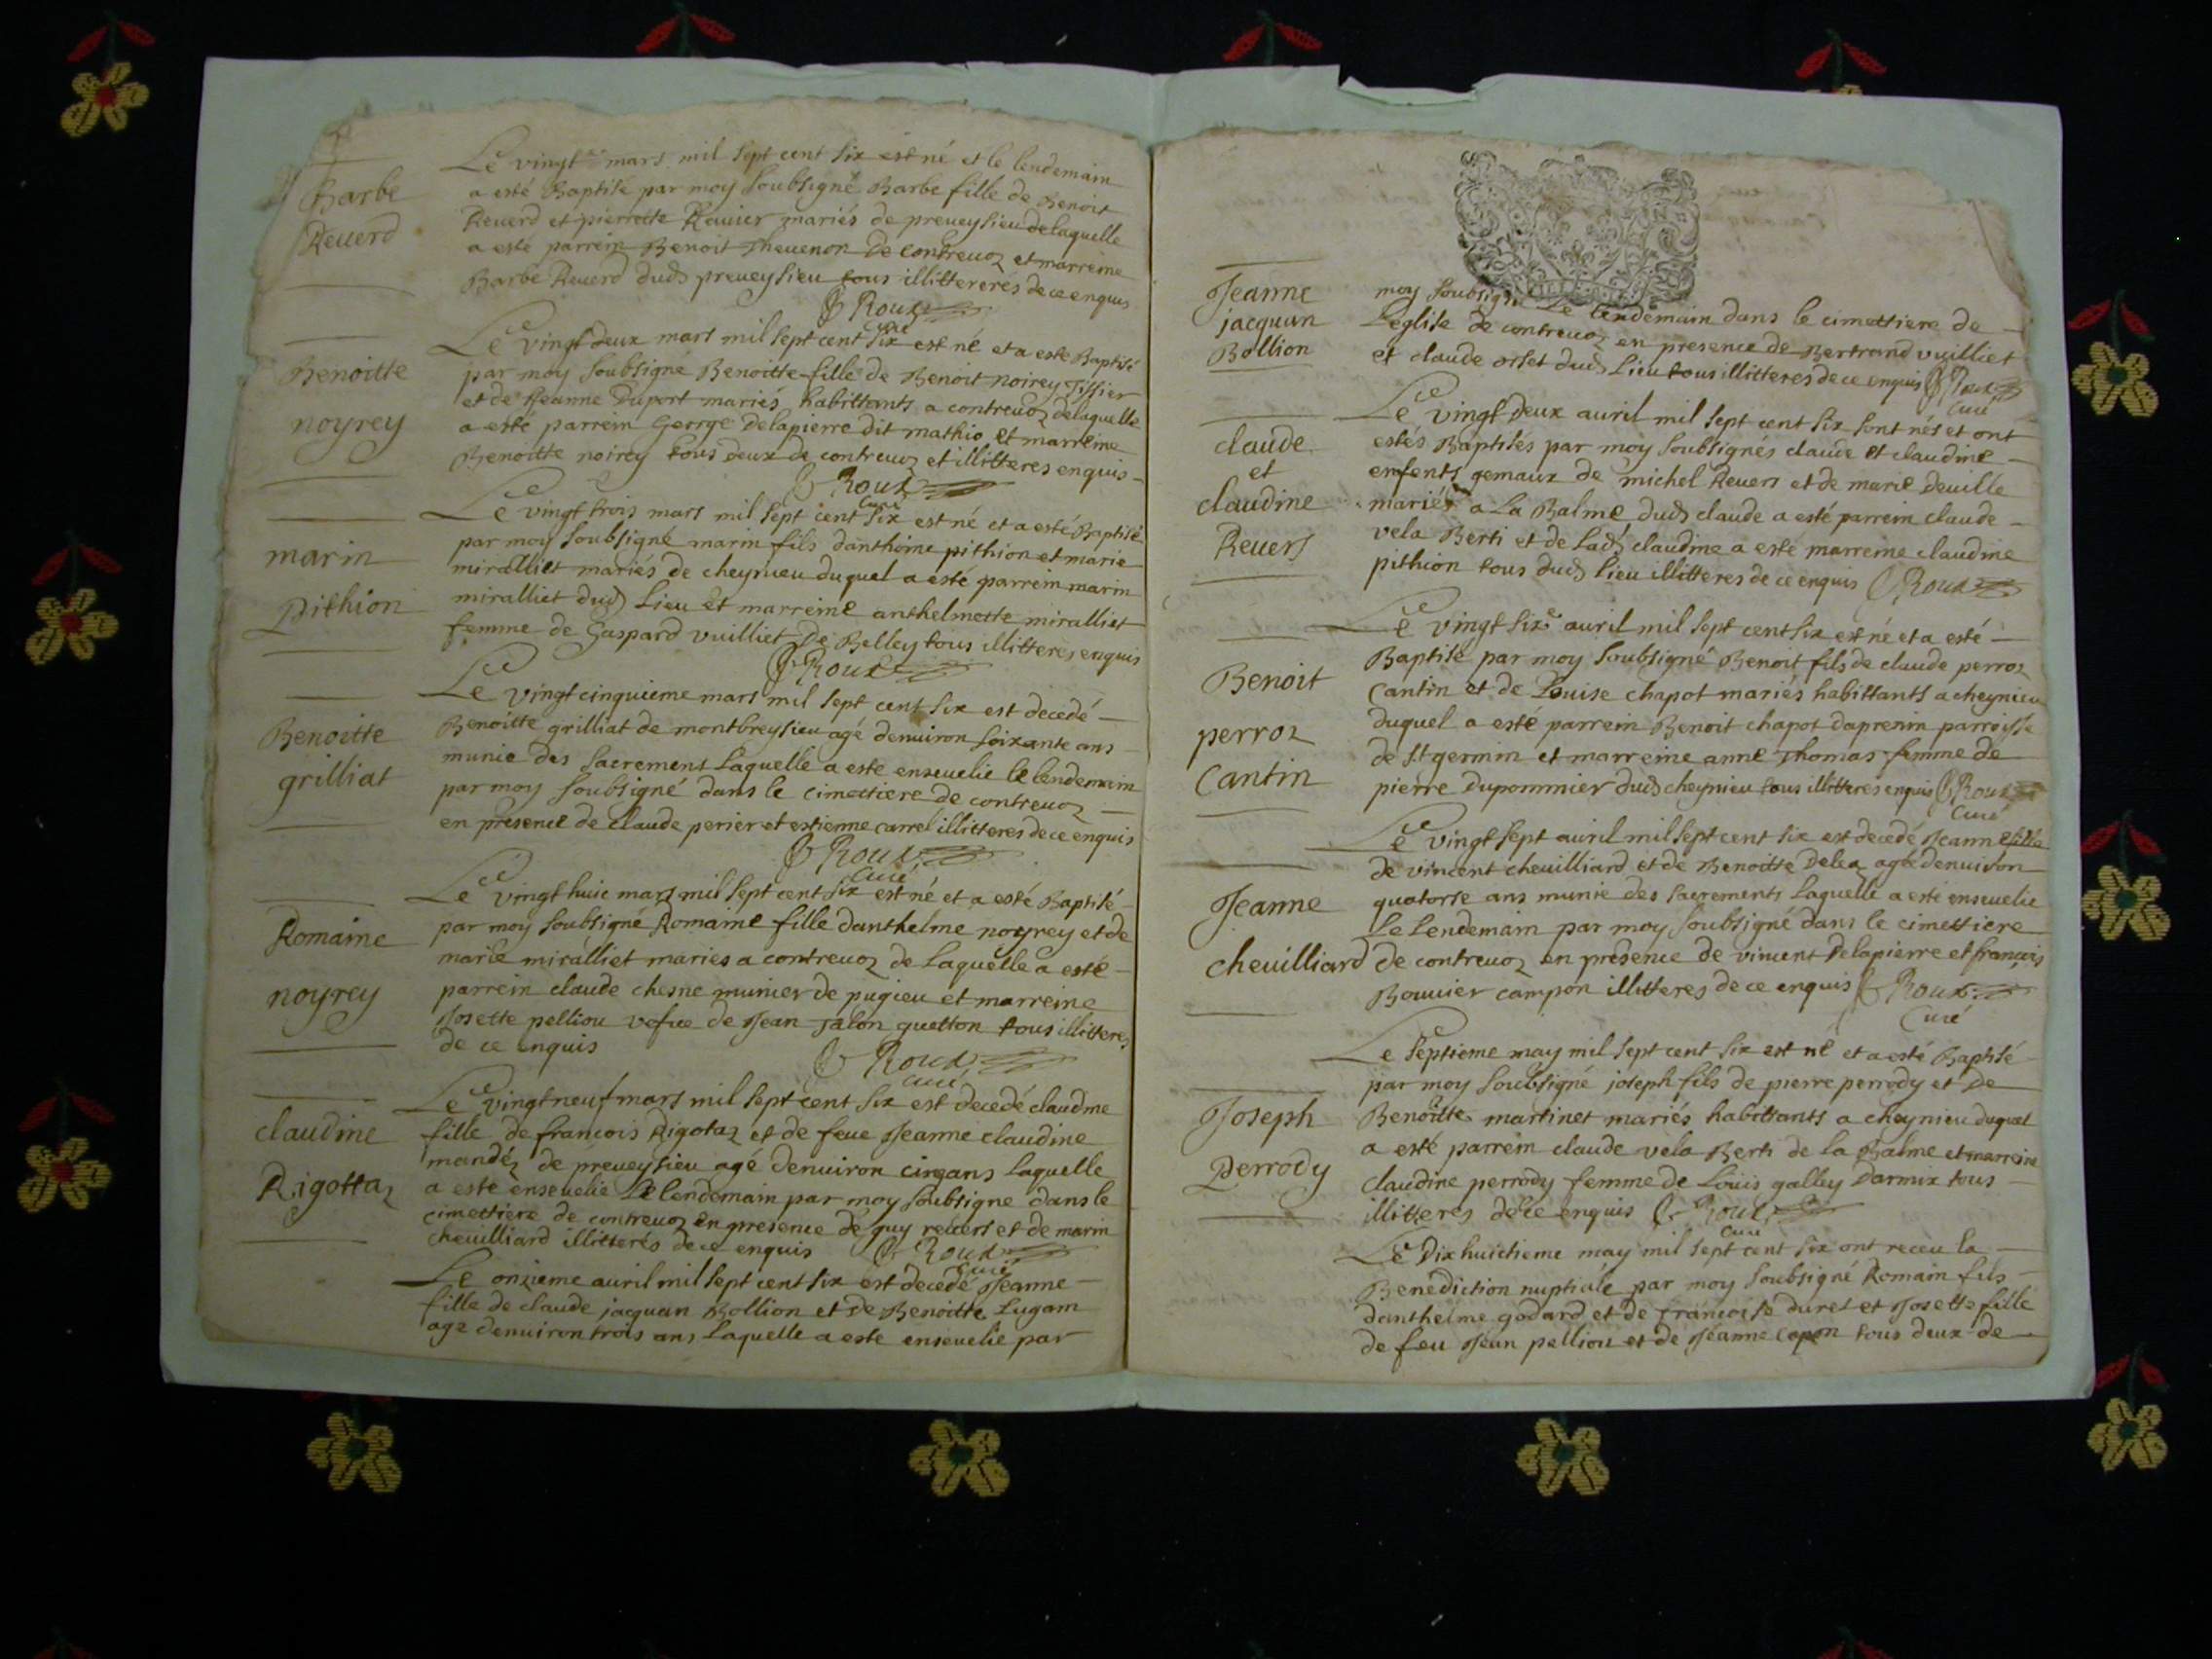 Barbe
Reuerd
Le vingt mars mil sept cent six est né et le lendemain
a esté Baptisé par moy soubsigné Barbe fille de Benoit
Reuerd et pierrette Rauier mariés de preueysieu de laquelle
a esté parrein Benoit Theuenon de contreuoz et marreine
Barbe Reuerd dud preueysieu tous illittererés de ce enquis
Roux
curé
Benoitte
noyrey
Le vingt deux mars mil sept cent six est né et a esté Baptisé
par moy soubsigné Benoitte fille de Benoit noirey Tissier
et de Jeanne Duport mariés habittants a contreuoz de laquelle
a esté parrein George Delapierre dit mathio et marreine
Benoitte noirey tous deux de contreuoz et illitteres enquis
Roux
curé
marin
pithion
Le vingt trois mars mil sept cent six est né et a esté Baptisé
par moy soubsigné marin fils danthoine pithion et marie
miralliet mariés de cheynieu duquel a esté parrein marin
miralliet dud lieu et marreine anthelmette miralliet
femme de Gaspard vuilliet De Belley tous illitteres enquis
Roux
Benoitte
grilliat
Le vingt cinquieme mars mil sept cent six est decedé
Benoitte grilliat de montbreysieu agé denuiron soixante ans
munie des sacrement laquelle a esté enseuelie le lendemain
par moy soubsigné dans le cimettiere de contreuoz
en présence de claude perier et estienne carrel illitteres de ce enquis
Roux
curé
Romaine
noyrey
Le vingt huic mars mil sept cent six est né et a esté Baptisé
par moy soubsigné Romaine fille danthelme noyrey et de
marie miralliet maries a contreuoz de laquelle a esté
parrein claude chesne munier de pugieu et marreine
Josette pelliou vefue de Jean Jalon guetton tous illitteres
de ce enquis
Roux
curé
claudine
Rigottaz
Le vingt neuf mars mil sept cent six est decedé claudine
fille de francois Rigotaz et de feue Jeanne claudine
mandéz de preueysieu agé denuiron cinq ans laquelle
a esté enseuelie Le lendemain par moy soubsigne dans le
cimettiere de contreuoz en presence de guy reuers et de marin
cheuilliard illitterés de ce enquis Roux
curé
Le onzieme auril mil sept cent six est decedé Jeanne
fille de claude jacquan Bollion et de Benoitte Lugam
age denuiron trois ans laquelle a esté enseuelie par
Jeanne
jacquan
Bollion
moy soubsigné Le lendemain dans le cimettiere de
Leglise de contreuoz en presence de Bertrand vuilliet
et claude orset dud Lieu tous illitteres de ce enquis Roux
curé
claude
et
claudine
Reuers
Le vingt deux auril mil sept cent six sont nés et ont
estés Baptisés par moy soubsignés claude et claudine
enfents gemaux de michel Reuers et de marie deuille
mariés a La Balme dud claude a esté parrein claude
vela Berti et de lad claudine a esté marreine claudine
pithion tous dud lieu illitteres de ce enquis Roux
Benoit
perroz
Cantin
Le vingt six auril mil sept cent six est né et a esté
Baptisé par moy soubsigné Benoit fils de claude perroz
Cantin et de Louise chapot mariés habittants a cheynieu
duquel a esté parrein Benoit chapot dapremn parroisse
de st germin et marreine anne Thomas femme de
pierre Dupommier dud cheynieu tous illitteres enquis Roux
curé
Jeanne
cheuilliard
Le vingt sept auril mil sept cent six est decedé Jeanne fille
de vincent cheuilliard et de Benoitte Delea agée denuiron
quatorse ans munie des sacrements laquelle a esté enseuelie
le lendemain par moy soubsigné dans le cimettiere
de contreuoz en présence de vincent Delapierre et françois
Bouuier campon illitteres de ce enquis Roux
curé
Joseph
Perrody
Le septieme may mil sept cent six est né et a esté Baptisé
par moy soubsigné joseph fils de pierre perrody et de
Benoitte martinet mariés habittants a cheynieu duquel
a esté parrein claude vela Berti de la Balme et marreine
claudine perrody femme de Loüis galley Darmix tous
illitteres de ce enquis Roux
curé
Le Dix huictieme may mil sept cent six ont receu la
Benediction nuptiale par moy soubsigné Romain fils
danthelme godard et de francoise duret et Josette fille
de feu Jean pelliou et de Jeanne Capon tous deux de